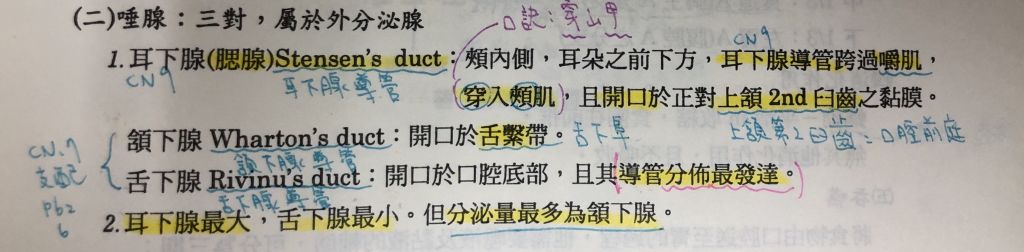 (二)唾腺：三對，屬於外分泌腺
口訣：穿山甲
1.耳下腺(腮腺)Stensen's duct：頰內側，耳朵之前下方，耳下腺導管跨過嚼肌，
CN9
耳下腺導管
CN9
穿入頰肌，且開口於正對上頷 2nd 臼齒之黏膜。
頷下腺 Wharton's duct：開口於舌繫帶。
舌下阜
上頷第2臼齒：口腔前庭
頷下腺導管
CN.7
支配
P62
6
舌下腺 Rivinu's duct：開口於口腔底部，且其導管分佈最發達。
舌下腺導管
2.耳下腺最大，舌下腺最小。但分泌量最多為頷下腺。